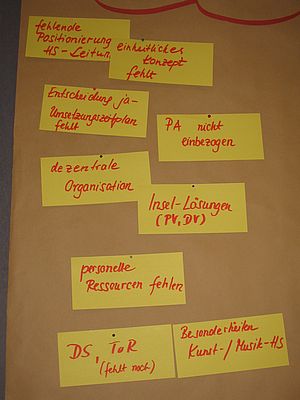 fehlende
Positionierung
HS-Leitung
einheitliches
Konzept
fehlt
Entscheidung ja-
Umsetzungszeitplan
fehlt
PA nicht
einbezogen
dezentrale
Organisation
Insel-Lösungen
(PV, DV)
personelle
Ressourcen fehlen
DS, ToR
(fehlt noch)
Besonderheiten
Kunst-/Musik-HS